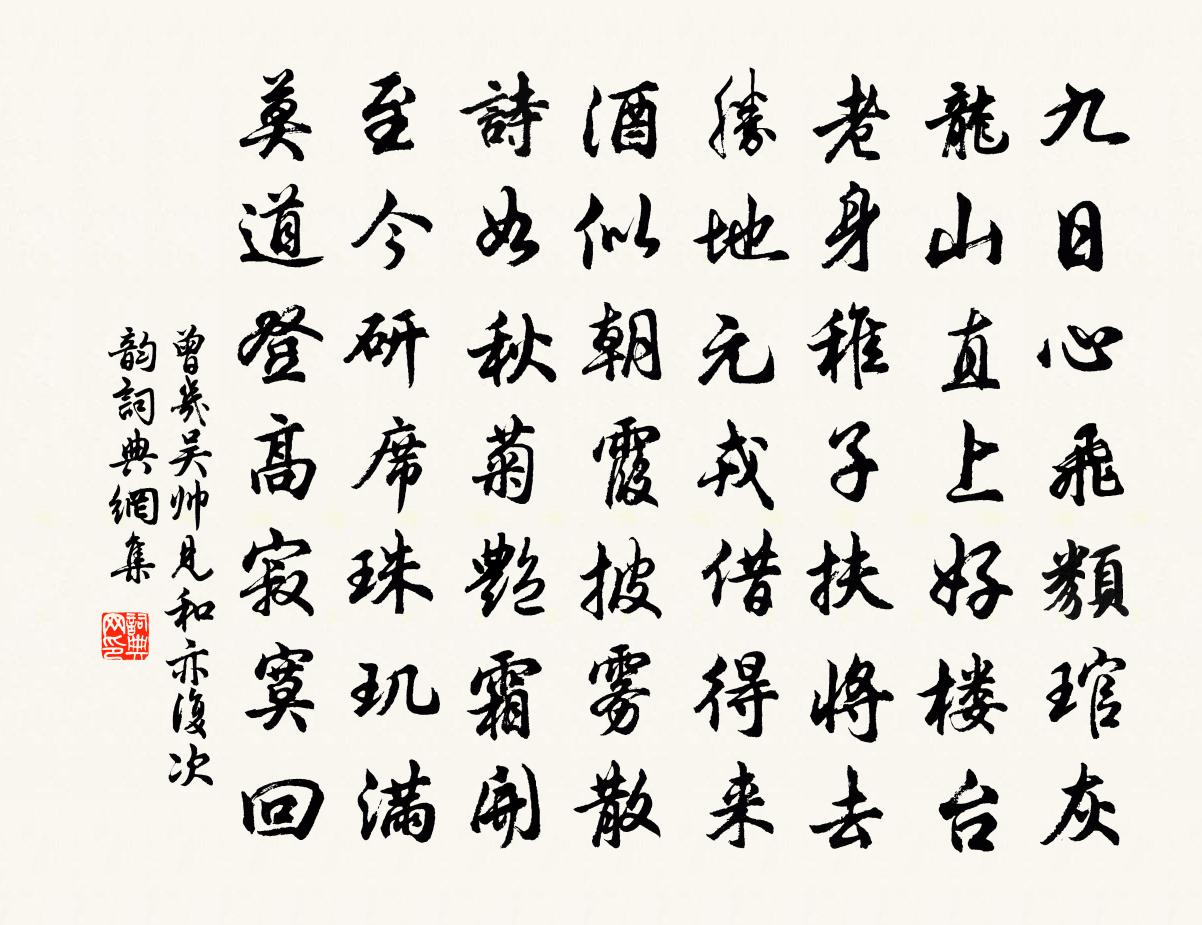 九日心飛類琯灰
龍山直上好楼台
老身稚子扶将去
勝地元戎借得来
酒似朝霞披雾散
詩如秋菊艶霜開
至今研席珠玑满
莫道登高寂寞回
曾幾吴帅見和亦復次
韵詞典網集
詞典网印